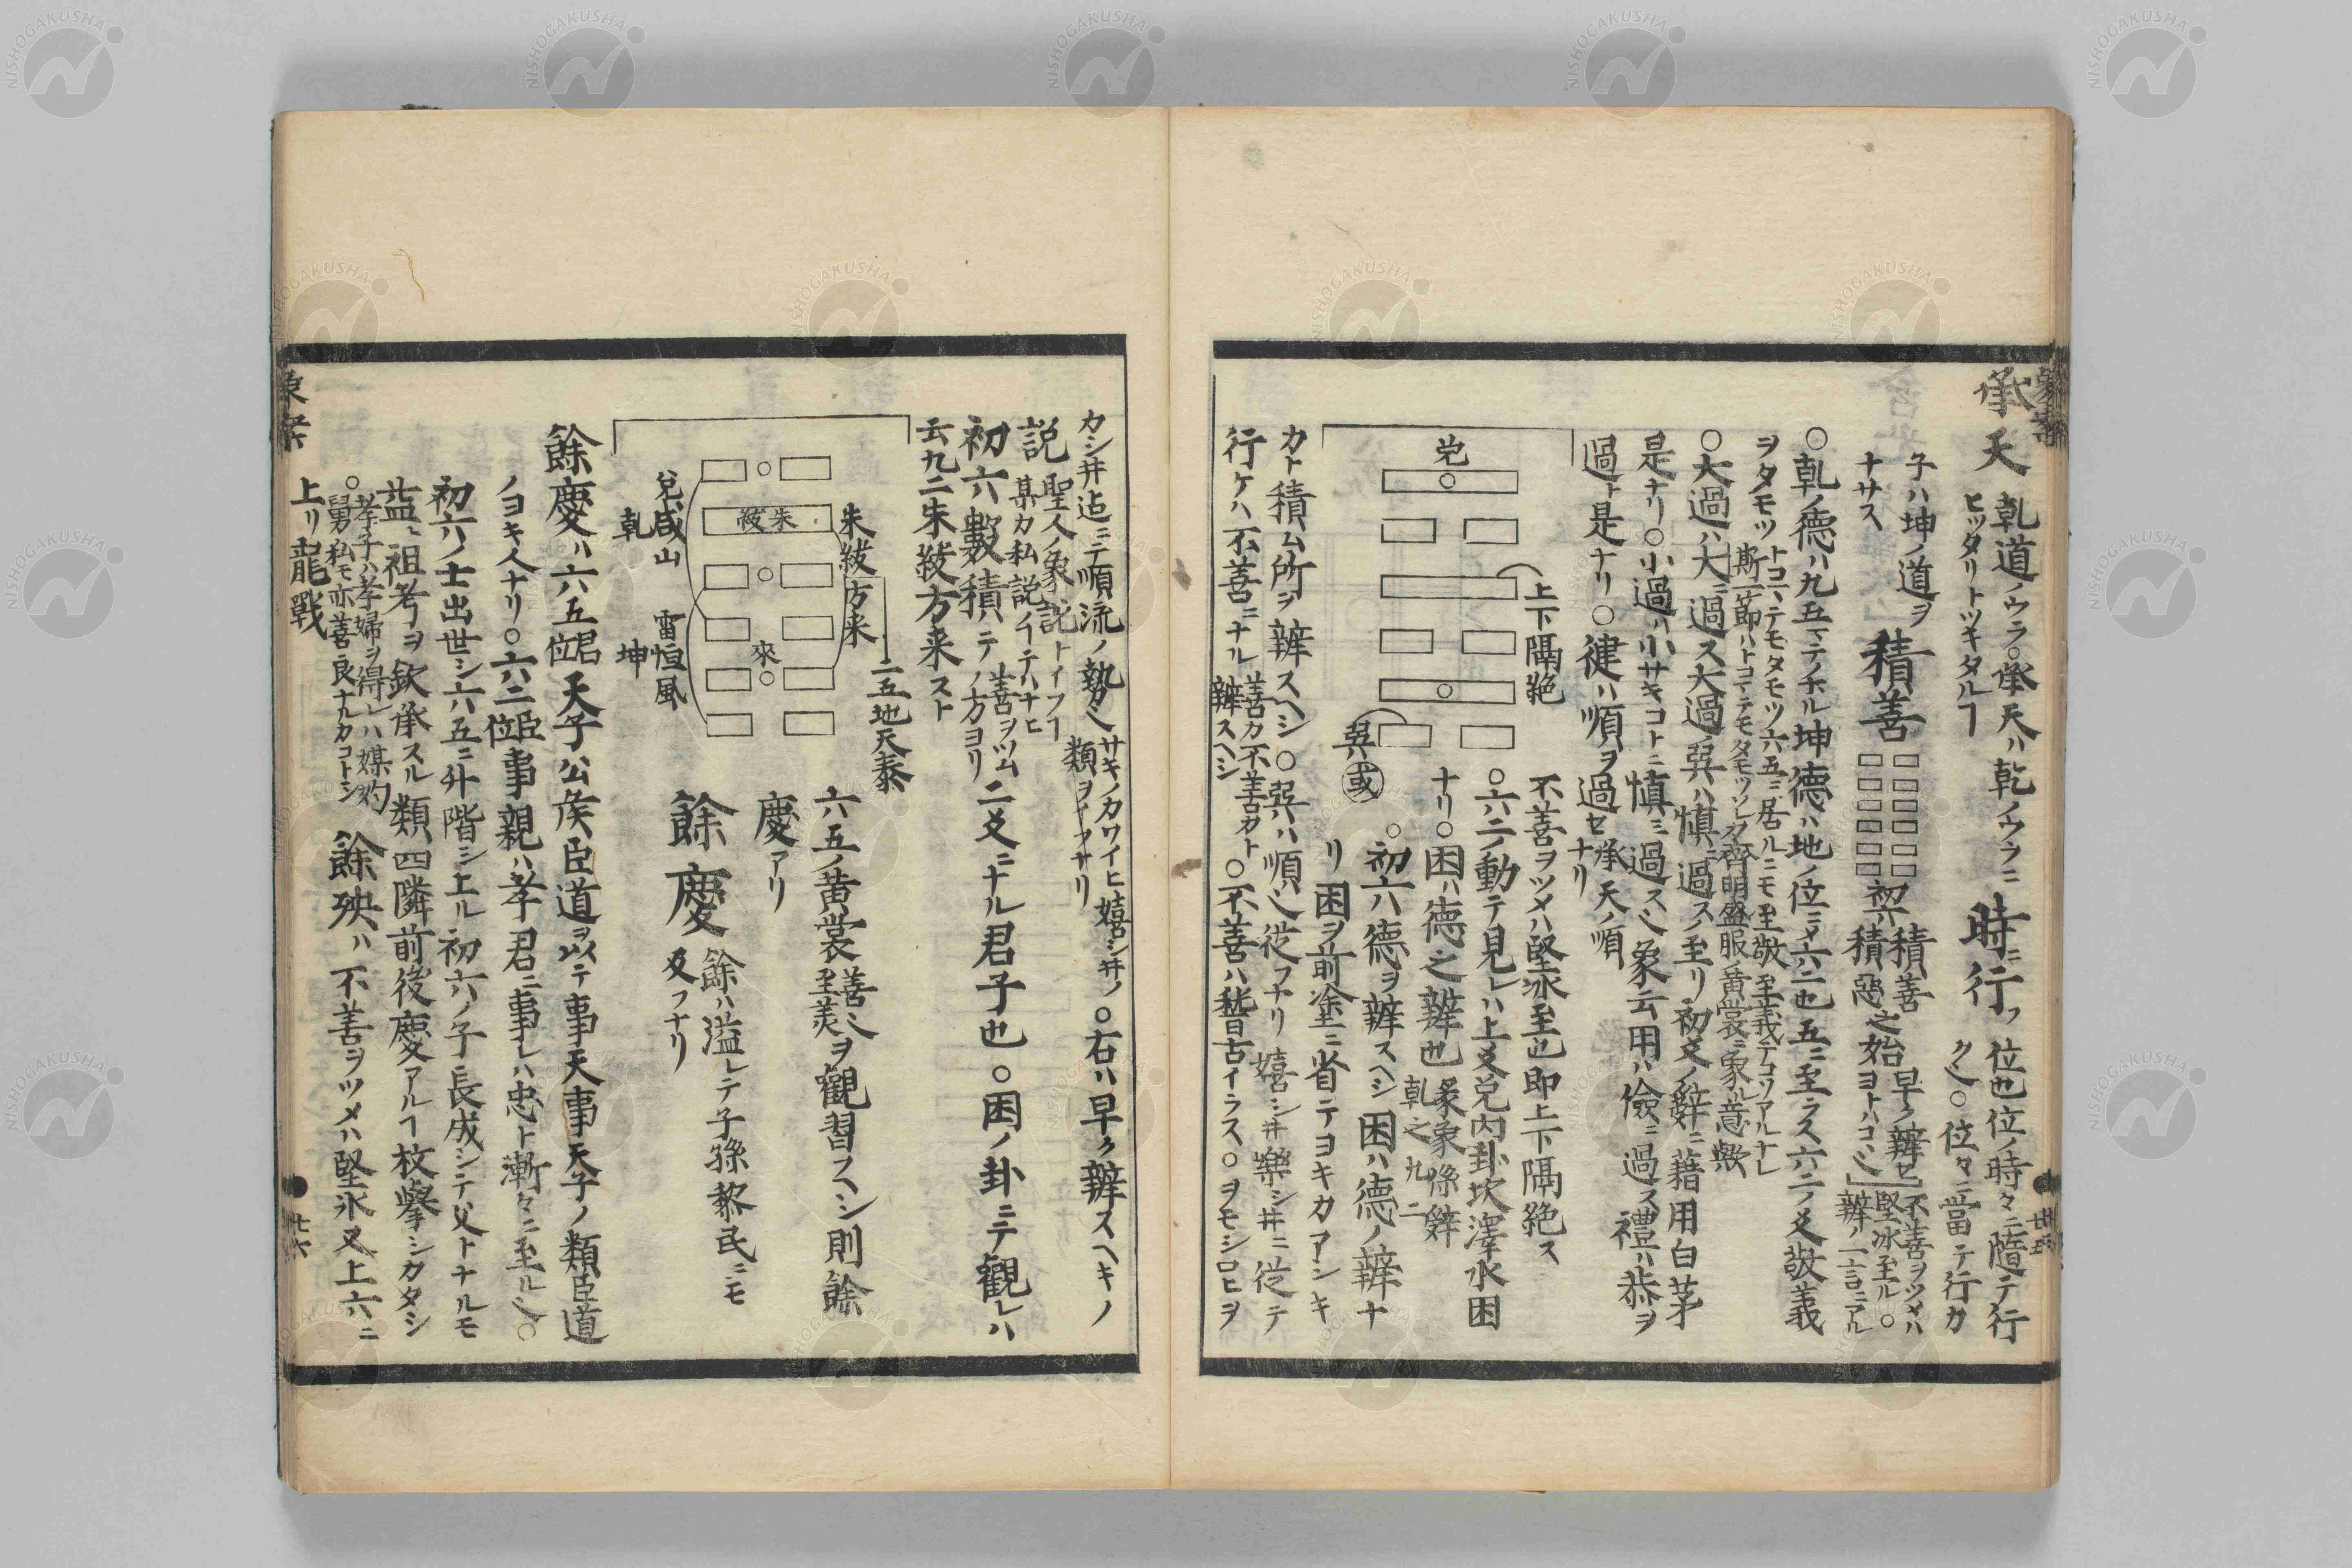 承天 乾道ノウラ。承天ハ乾ノウラニ
ヒッタリトツキタルヿ
時ニ行フ 位也位ノ時々ニ隨テ行
ク也○位々ニ當テ行カ
子ハ坤ノ道ヲ
ナサス
積善 初六
積善
積惡之始
早ク辨セ
ヨトハコヽ也
不善ヲツメハ
堅冰至ル○
辨ノ一言ニアル
○乾ノ德ハ九五マテノホル坤德ハ地ノ位ニメ六二也五ニ至ラス六二ノ爻敬義
ヲタモツ トコマテモタモツ六五ニ居ルニモ至敬至義テコソアルナレ
斯ノ節ハトコマテモタモツソレカ齊明盛服ノ黄裳ニ象ル意歟
○大過ハ大ニ過ス大過巽ハ慎ニ過スノ至リ初爻ノ辭ニ藉用白茅
是ナリ○小過ハ小サキコトニ慎ミ過ス也象云用ハ儉ニ過ス禮ハ恭ヲ
過ト是ナリ○健ハ順ヲ過セ 承天ノ順
ナリ
兌
上下隔絶
巽 或
不善ヲツメハ堅冰至也即上下隔絶ス
○六二ノ動テ見レハ上爻兌内卦坎澤水困
ナリ○困ハ德之辨也 彖象係辭
乾之九二
○初六德ヲ辨スヘシ困ハ德ノ辨ナ
リ困ヲ前塗ニ省テヨキカアシキ
カト積ム所ヲ辨スヘシ○巽ハ順也從フナリ嬉シ井樂シ井ニ從テ
行ケハ不善ニナル 善カ不善カト
辨スヘシ
○不善ハ稽古イラス○ヲモシロヒヲ
カシ井迠ニテ順流ノ勢也 サキノカワイヒ嬉シ井ノ
類ヲイフサリ
○右ハ早ク辨スヘキノ
説 聖人ノ象説トイフヿ
某カ私説イテハナヒ
初六數積テ 善ヲツム
ノ方ヨリ
二爻ニナル君子也○困ノ卦ニテ觀レハ
云九二朱紱方来スト
二五地天泰
朱紱方来
朱紱
來
兌 咸 山
乾
雷 恒 風
坤
六五ノ黄裳 善也
至美
ヲ觀習フヘシ則餘
慶アリ
餘慶 餘ハ溢レテ子孫黎民ニモ
及フナリ
餘慶ハ六五 君
位
天子公侯臣道ヲ以テ事天事天子ノ類臣道
ノヨキ人ナリ○六二 臣
位
事親ハ孝君ニ事レハ忠ト漸々ニ至ル也○
初六ノ士出世シ六五ニ升階シ上ル初六ノ子長成シテ父トナルモ
葢祖考ヲ欽承スル類四隣前後慶アルヿ枚擧シカタシ
○孝子ハ孝婦ヲ得レハ媒妁
舅私モ亦善良ナルカコトシ
餘殃ハ不善ヲツメハ堅氷又上六ニ
上リ龍戰
廿六